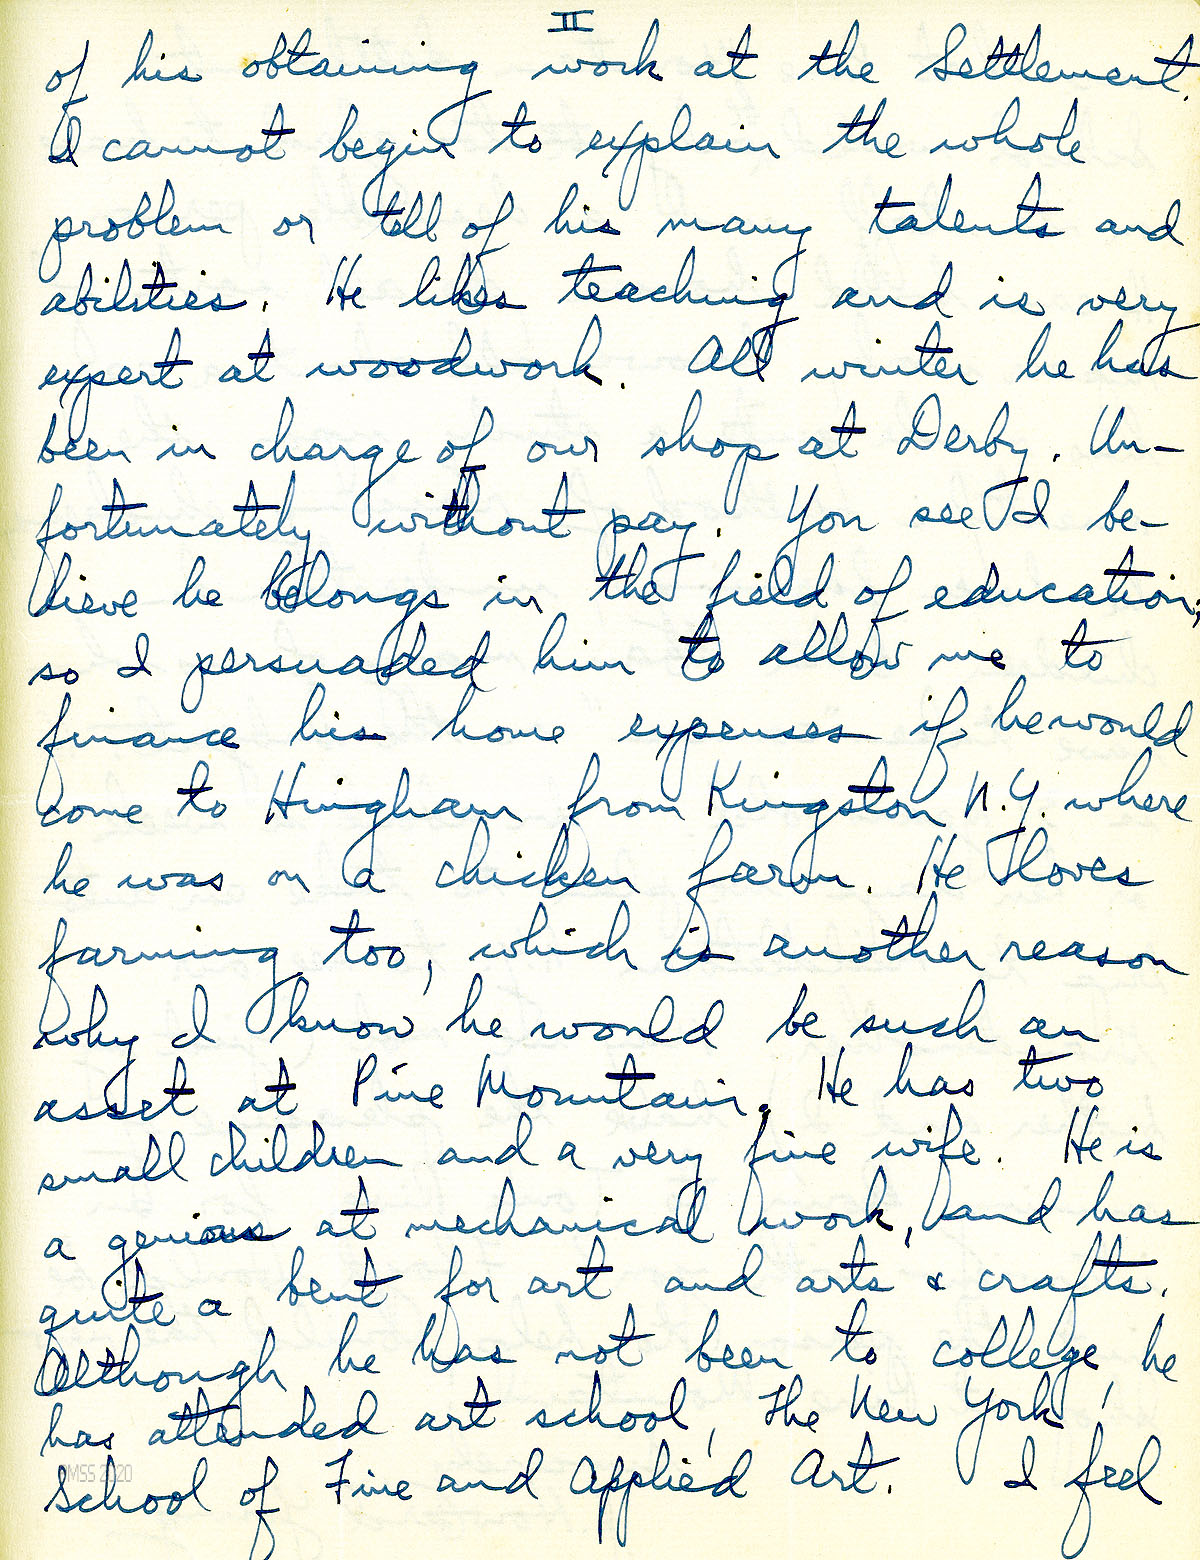 II
of his obtaining work at the Settlement.
I cannot begin to explain the whole
problem or tell of his many talents and
abilities. He likes teaching and is very
expert at woodwork. All winter he has
been in charge of our shop at Derby. Un-
fortunately without pay. You see I be-
lieve he belongs in the field of education;
so I persuaded him to allow me to
finance his home expenses if he would
come to Hingham from Kingston N.Y. where
he was on a chicken farm. He loves
farming too, which is another reason
why I know he would be such an
asset at Pine Mountain. He has two
small children and a very fine wife. He is
a genious at mechanical work, and has
quite a bent for art and arts & crafts.
Although he has not been to college, he
has attended art school, The New York
School of Fine and Applied Art. I feel
PMSS 2020